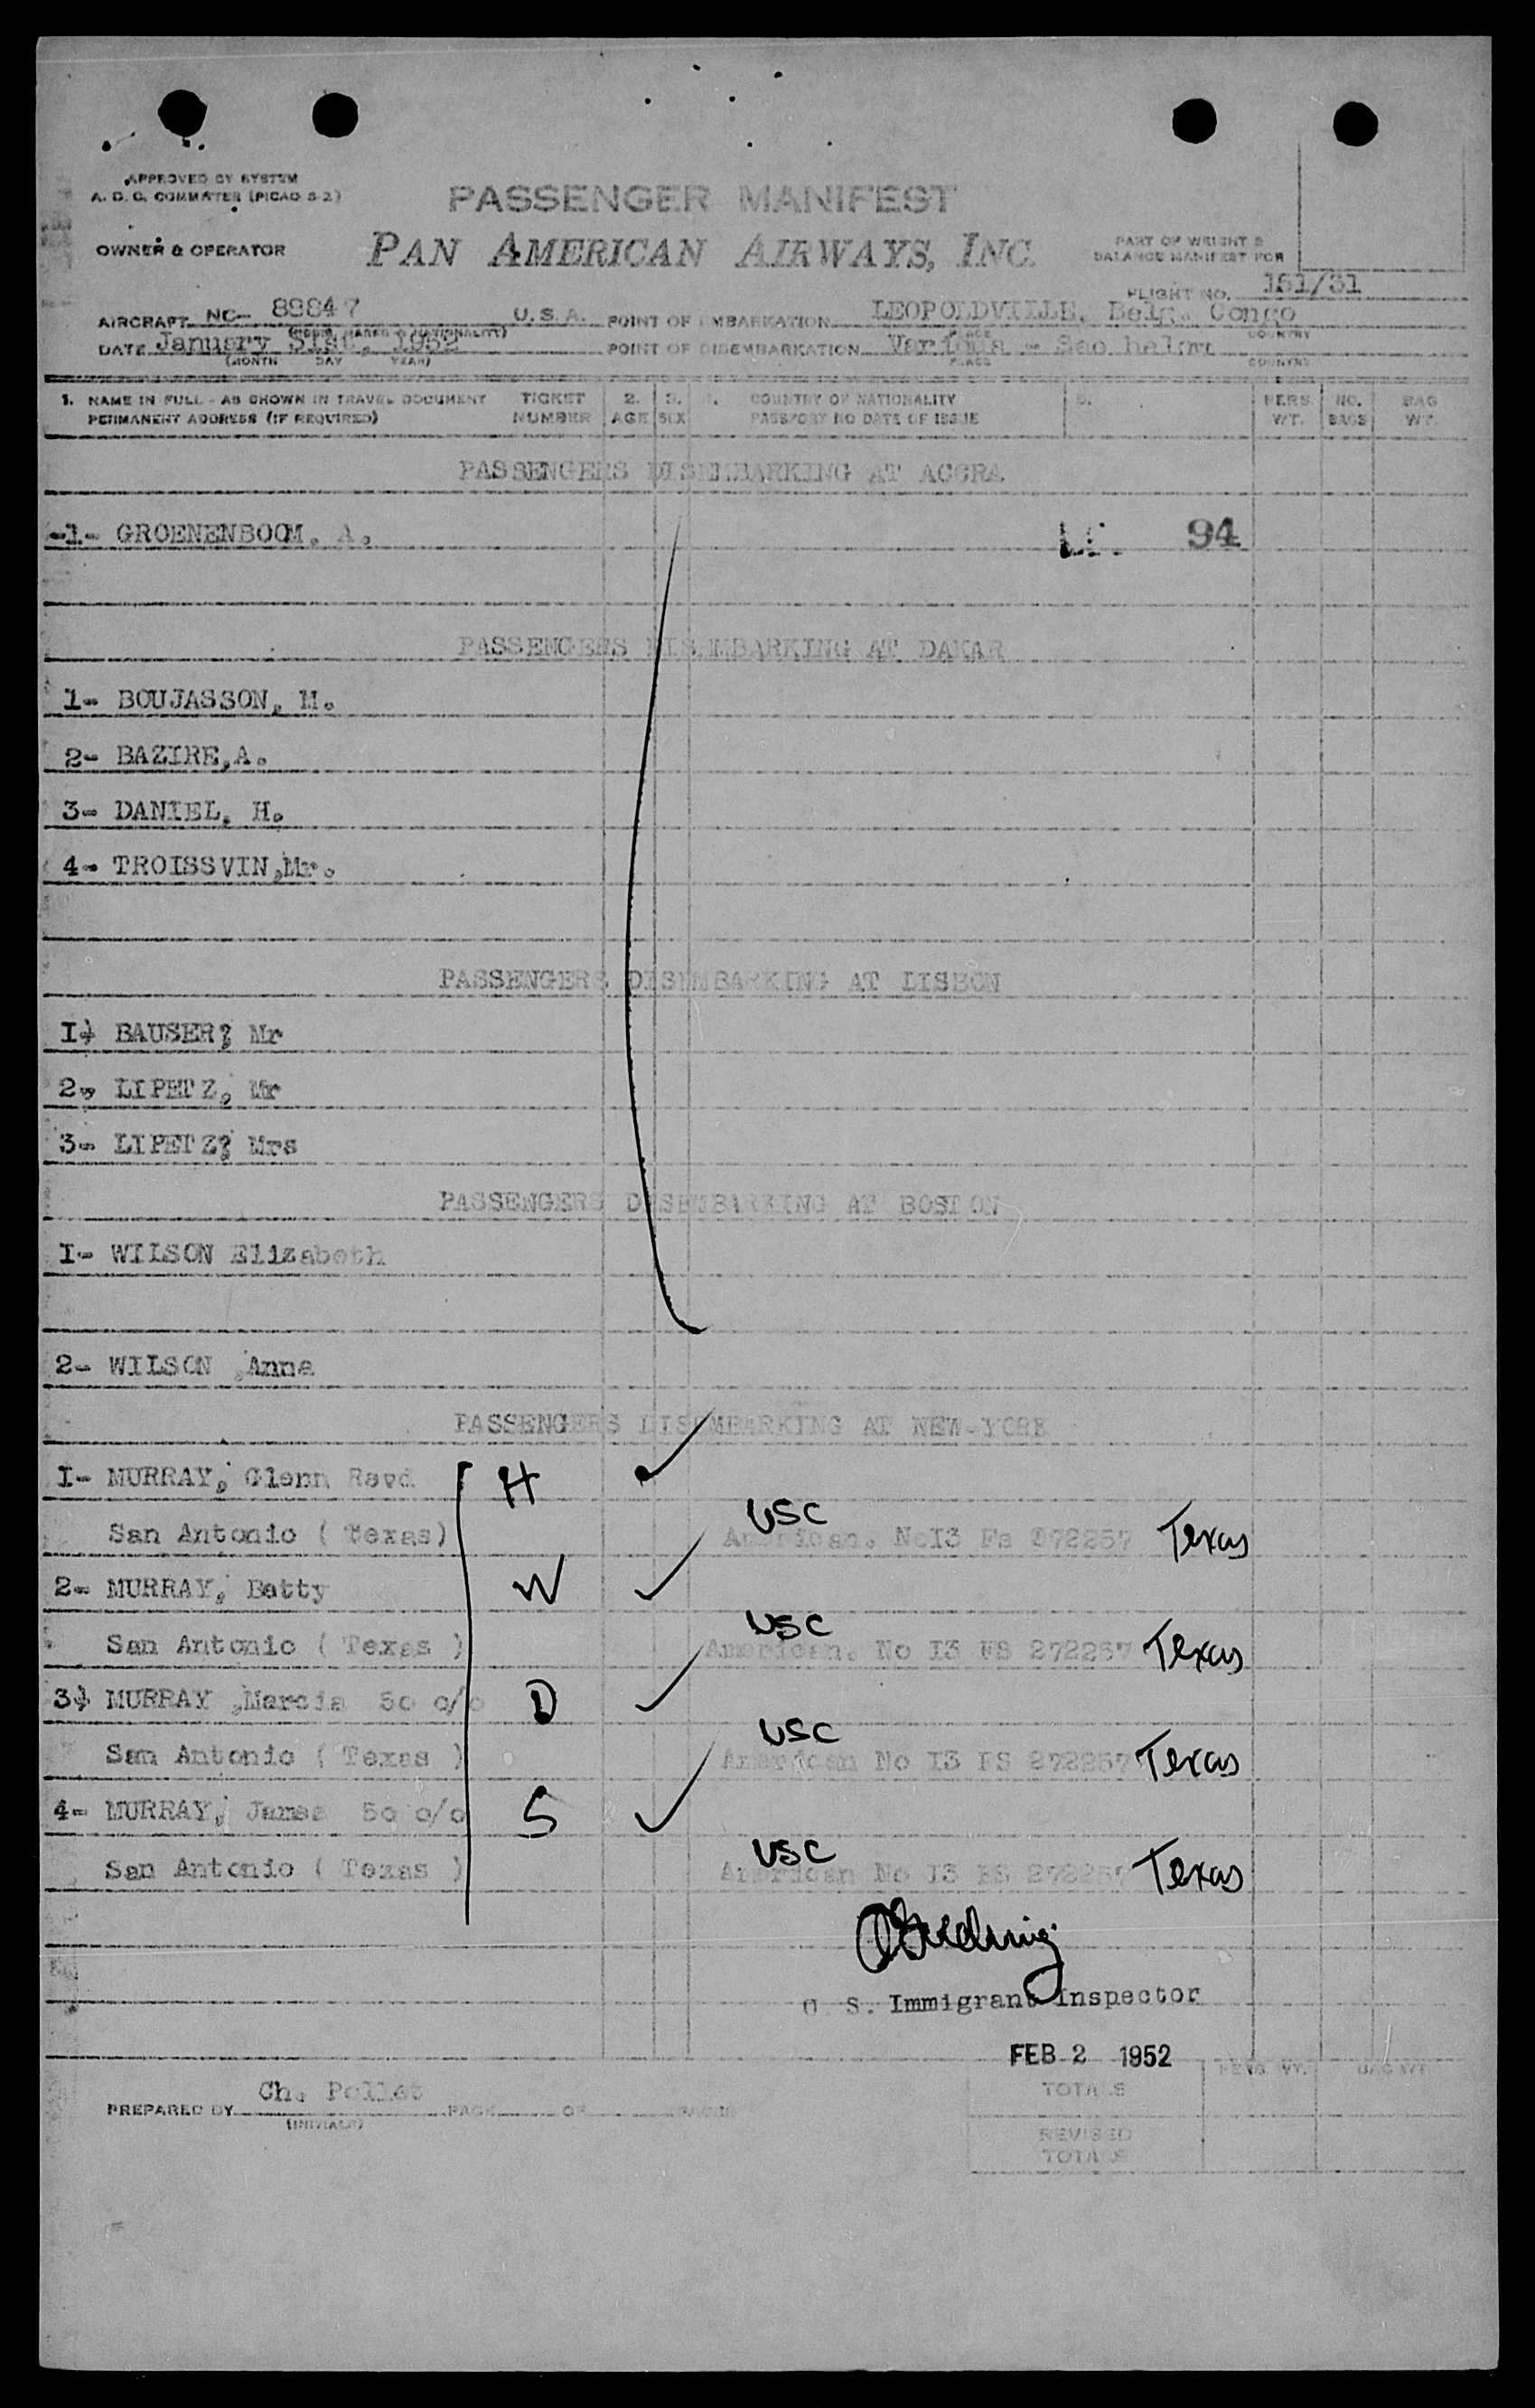 APPROVED BY SYSTEM
A. O. C. COMMATER (PICAO S-2)
PASSENGER MANIFEST
OWNER & OPERATOR
PAN AMERICAN AIRWAYS, INC.
PART OF WEIGHT &
BALANCE MANIFEST FOR
FLIGHT NO. 151/31
AIRCRAFT NC- 88847 U.S.A. POINT OF EMBARKATION LEOPOLDVILLE, Belg. Congo
DATE January 31st, 1952 POINT OF DISEMBARKATION Various - See below
(MONTH DAY YEAR) PLACE COUNTRY
1. NAME IN FULL - AS SHOWN IN TRAVEL DOCUMENT TICKET 2. 3. 4. COUNTRY OF NATIONALITY 5. PERS. NO. BAG
PERMANENT ADDRESS (IF REQUIRED) NUMBER AGE SEX PASSPORT NO DATE OF ISSUE WT. BAGS WT.
PASSENGERS DISEMBARKING AT ACCRA
-1- GROENENBOOM. A. 94
PASSENGERS DISEMBARKING AT DAKAR
1- BOUJASSON, M.
2- BAZIRE,A.
3- DANIEL, H.
4- TROISSVIN,Mr.
PASSENGERS DISEMBARKING AT LISBON
I- BAUSER? Mr
2- LIPETZ, Mr
3- LIPETZ? Mrs
PASSENGERS DISEMBARKING AT BOSTON
I- WILSON Elizabeth
2- WILSON Anne
PASSENGERS DISEMBARKING AT NEW-YORK
I- MURRAY, Glenn Rayd H
USC
San Antonio ( Texas) American. No I3 Fs 272257 Texas
2- MURRAY, Betty W
USC
San Antonio ( Texas ) American. No I3 FS 272257 Texas
3- MURRAY ,Marcia 50 o/o D
USC
San Antonio ( Texas ) American No I3 FS 272257 Texas
4- MURRAY, James 50 o/o S
USC
San Antonio ( Texas ) American No I3 FS 272257 Texas
U S. Immigrant Inspector
FEB 2 1952
PERS. WT. BAG WT.
TOTALS
Ch. Pollet
PREPARED BY PAGE OF PAGES
(INITIALS)
REVISED
TOTALS